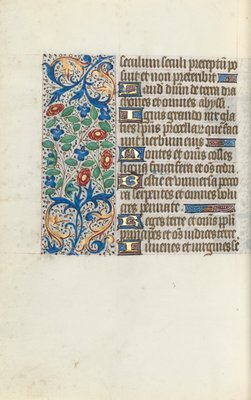 seculum seculi preceptū po
suit et non preteribit
Laud dnm̄ de terra dra
cones et omnes abyssi
Ignis grando nix gla
cies sp̄us procellar̄ que faci
unt verbum eius
Montes et om̄s colles
ligna fructifera et oēs cedri
Bestie et universa peco
ra serpentes et omnes volu
cres pennate
Reges terre et om̄s pp̄li
principes et oēs iudices terre
Iuvenes et virgines se